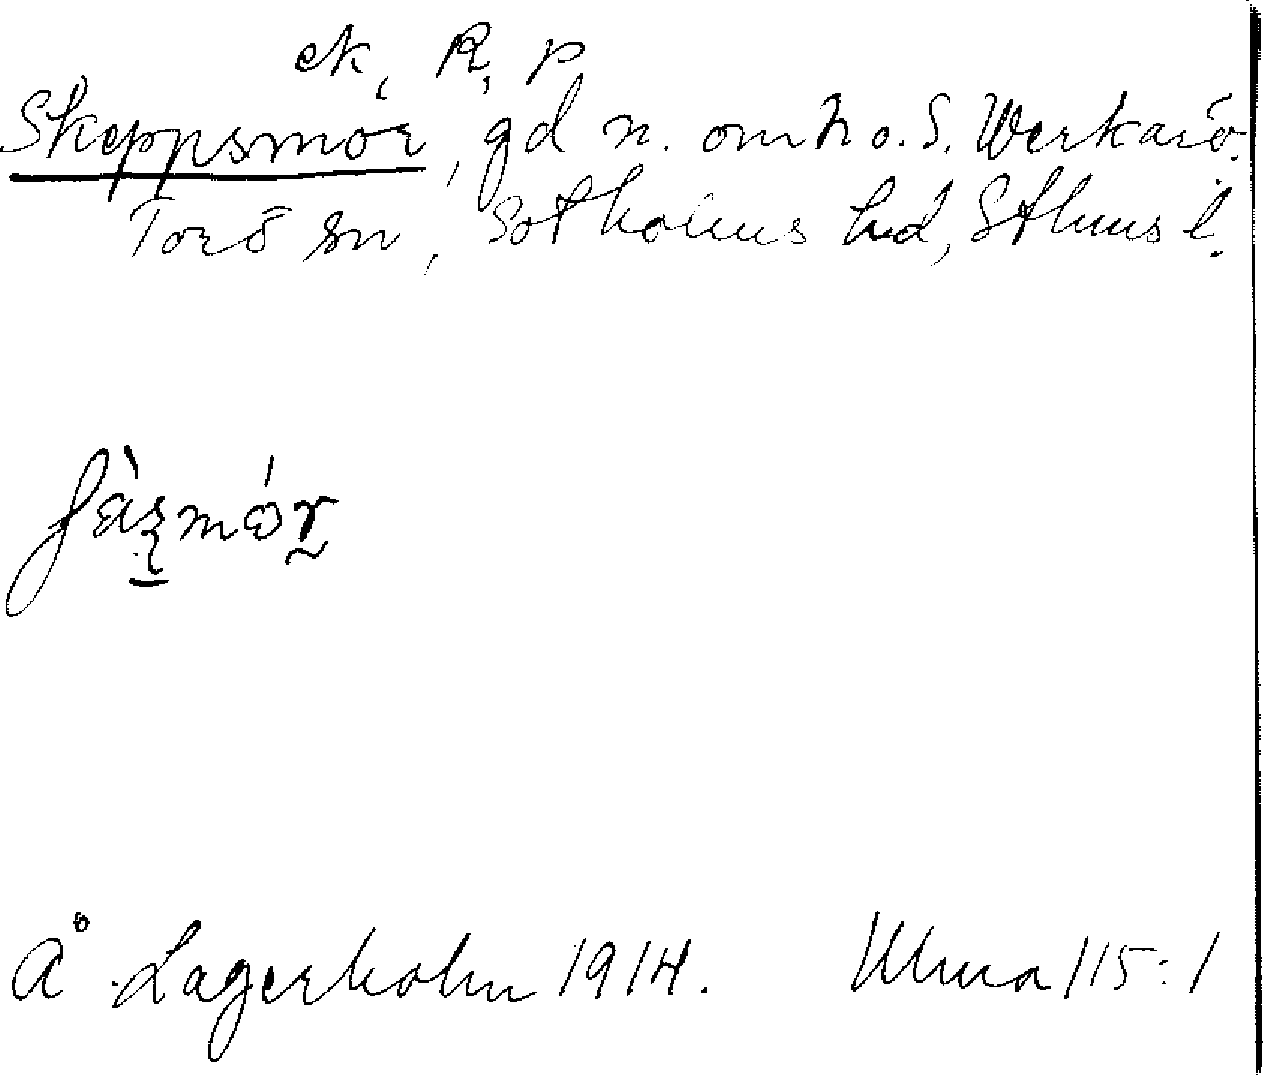 ek, R, p
Skeppsmor, gd n. om N o. S. Werkarö.
Torö sn, Sotholms hd, Sthms l.
Å. Lagerholm 1914. Ulma 115:1